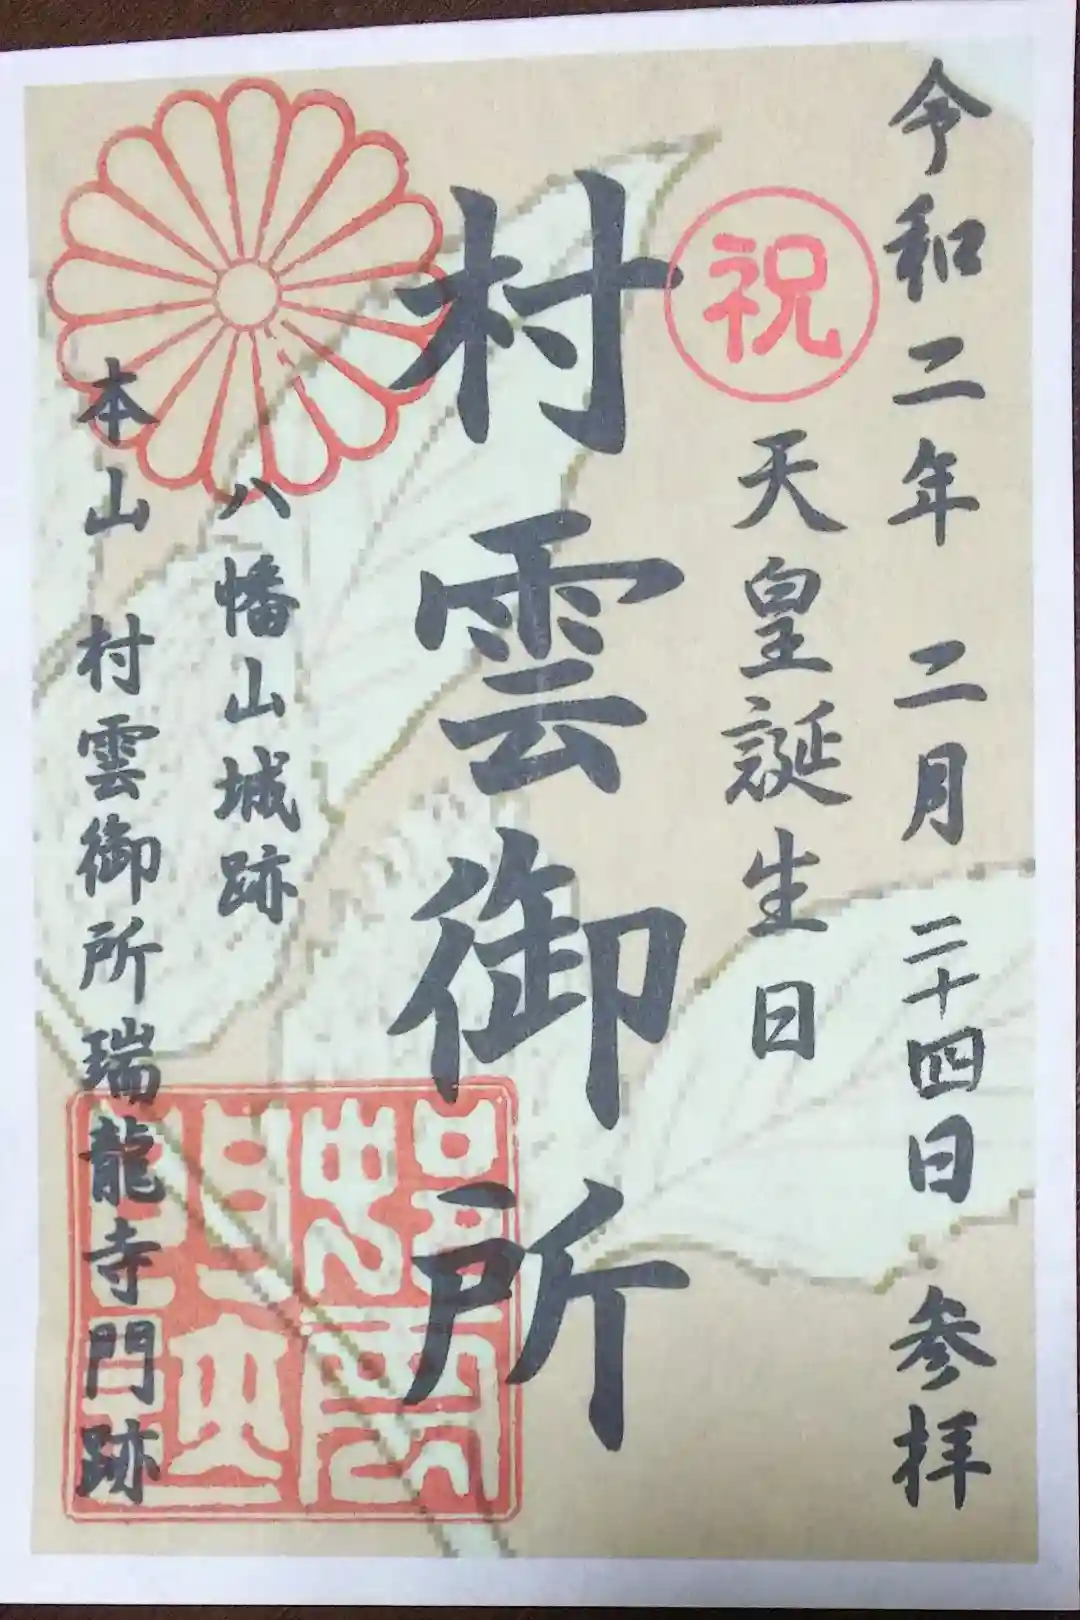 令和二年 二月 二十四日 参拝
祝
天皇誕生日
村雲御所
八幡山城跡
本山 村雲御所瑞龍寺門跡